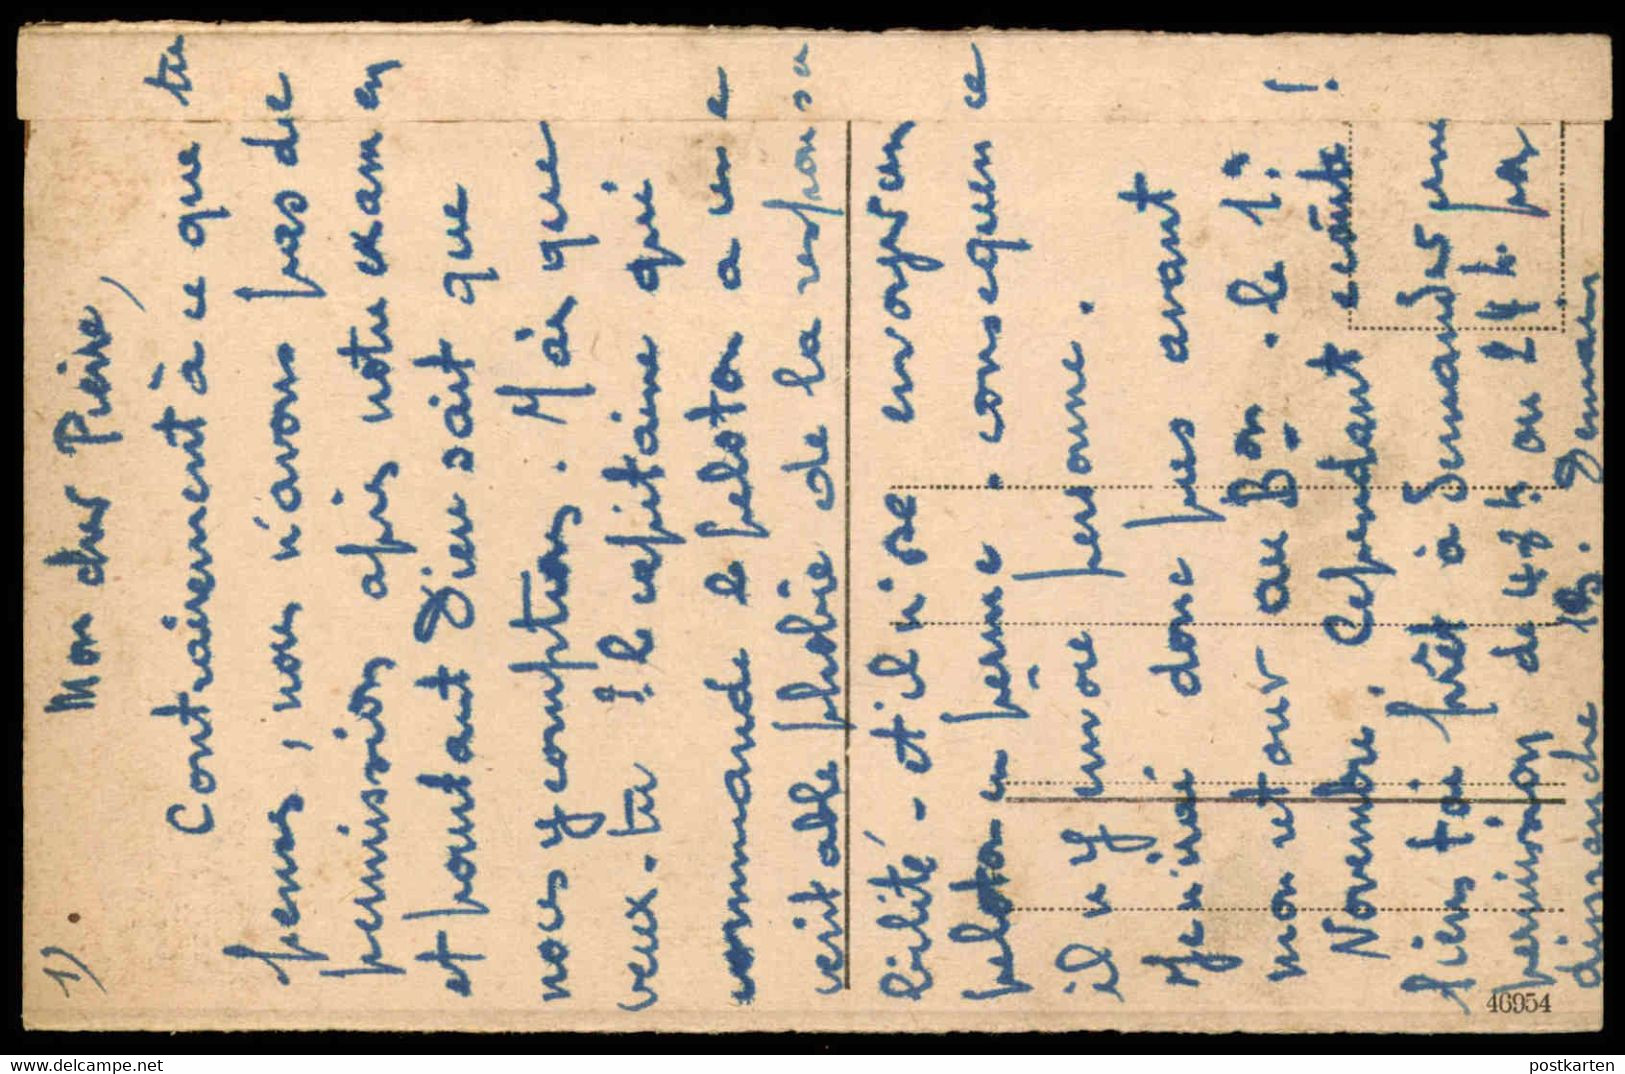 1).
Mon cher Pierre,
Contrairement à ce que tu
penses, nous n'avons pas de
permission après notre examen
et pourtant Dieu sait que
nous y comptions. Mais que
veux-tu ! le capitaine qui
commande le peloton a une
veritable phobie de la responsa
bilité - et il n'ose envoyer en
peloton en perme. consequence
il n'y envoie personne.
Je n'irai donc pas avant
mon retour au Bon. le 1er
Novembre. Cependant écoute !
tiens toi prêt à demander une
permission de 48 h ou 24 h. par
dimanche 18. Demain
46954
postkarten